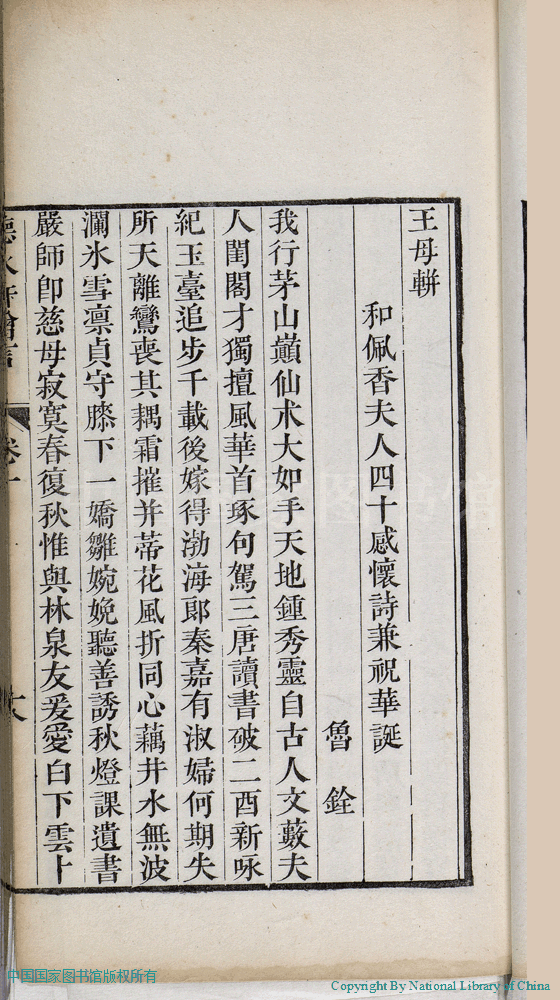 王母軿
和佩香夫人四十感懷詩兼祝華誕
魯銓
我行茅山巔仙朮大如手天地鍾秀靈自古人文藪夫
人閨閣才獨擅風華首琢句駕三唐讀書破二酉新咏
紀玉臺追步千載後嫁得渤海郎秦嘉有淑婦何期失
所天離鸞喪其耦霜摧并蒂花風折同心藕井水無波
瀾氷雪凛貞守膝下一嬌雛婉娩聽善誘秋燈課遺書
嚴師卽慈母寂寞春復秋惟與林泉友爰愛白下雲卜
卷一
中国国家图书馆版权所有
Copyright By National Library of China